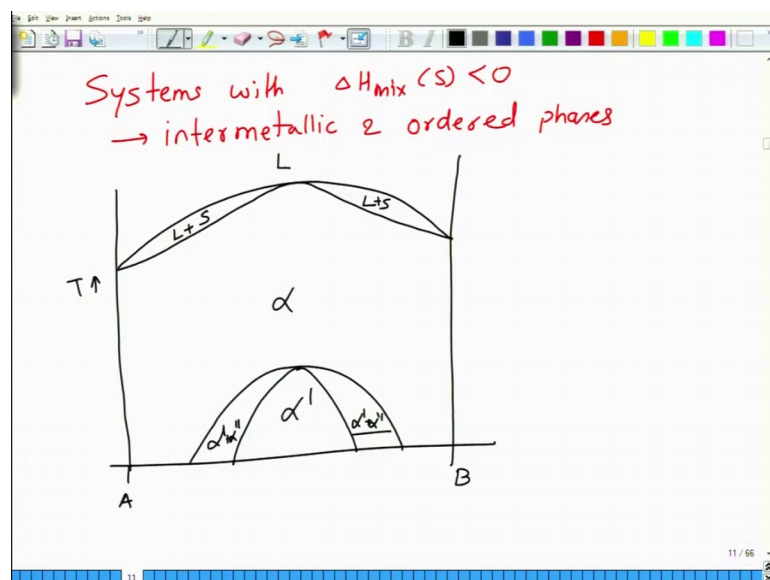 File Edit View Insert Actions Tools Help
B I
Systems with ΔHmix (S) <0
→ intermetallic & ordered phases
L
L+S L+S
T↑
α
α'
α'+α'' α'+α''
A B
11 / 66
11